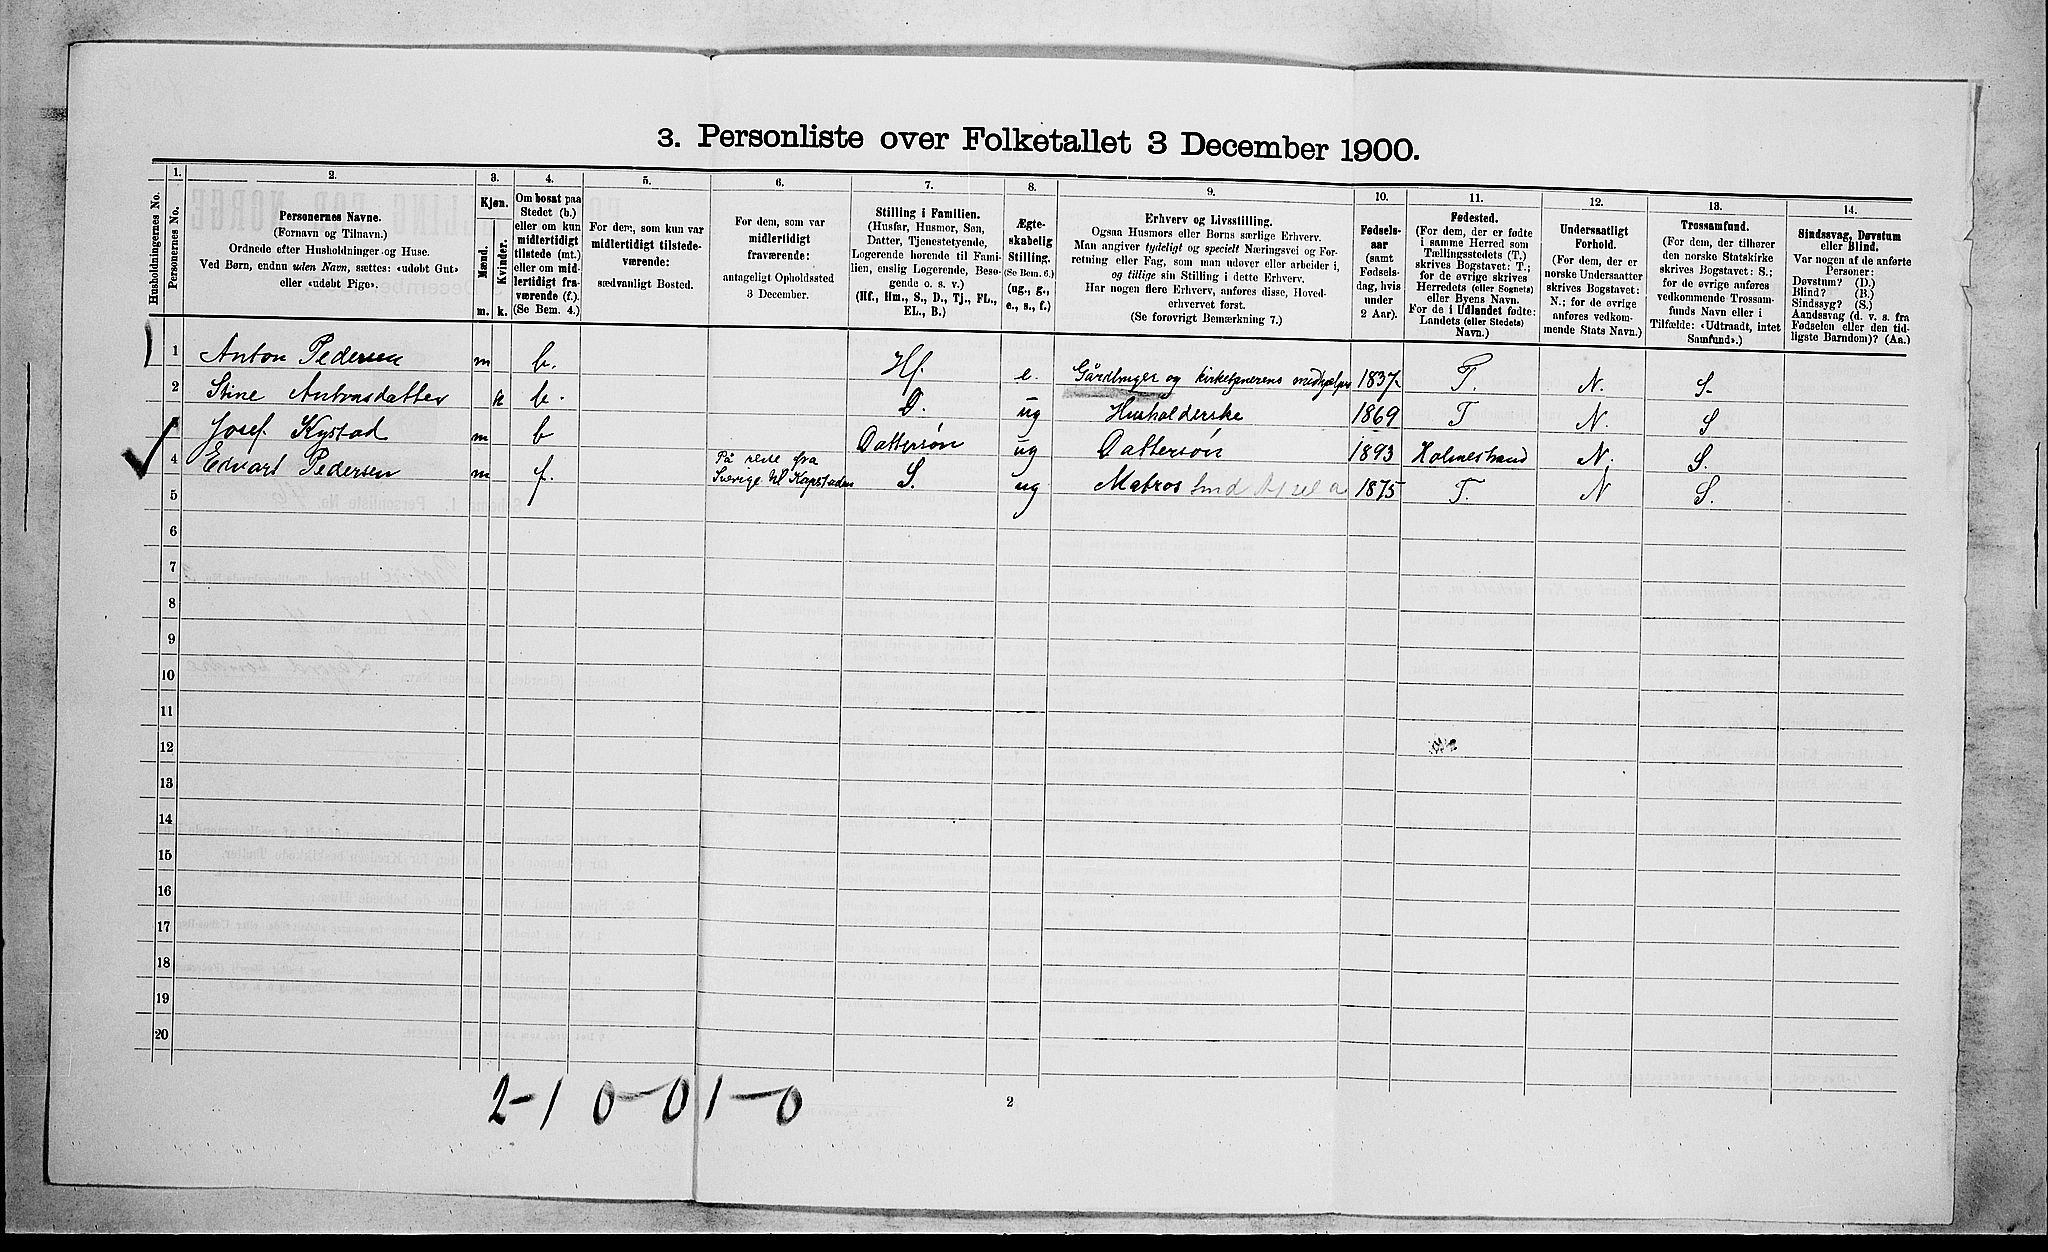 3. Personliste over Folketallet 3 December 1900.
1. 2. 3. 4. 5. 6. 7. 8. 9. 10. 11. 12. 13. 14.
Husholdningernes No.
Personernes No.
Personernes Navne.
(Fornavn og Tilnavn.)
Ordnede efter Husholdninger og Huse.
Ved Børn, endnu uden Navn, sættes: «udøbt Gut»
eller «udøbt Pige».
Kjøn.
Mænd.
Kvinder.
m. k.
Om bosat paa
Stedet (b.)
eller om kun
midlertidigt
tilstede (mt.)
eller om mid-
lertidigt fra-
værende (f.).
(Se Bem. 4.)
For dem, som kun var
midlertidigt tilstede-
værende:
sædvanligt Bosted.
For dem, som var
midlertidigt
fraværende:
antageligt Opholdssted
3 December.
Stilling i Familien.
(Husfar, Husmor, Søn,
Datter, Tjenestetyende,
Logerende hørende til Fami-
lien, enslig Logerende, Besø-
gende o. s. v.)
(Hf., Hm., S., D., Tj., FL.,
EL., B.)
Ægte-
skabelig
Stilling.
(Se Bem. 6.)
(ug., g.,
e., s., f.)
Erhverv og Livsstilling.
Ogsaa Husmors eller Børns særlige Erhverv.
Man angiver tydeligt og specielt Næringsvei og For-
retning eller Fag, som man udøver eller arbeider i,
og tillige sin Stilling i dette Erhverv.
Har nogen flere Erhverv, anføres disse, Hoved-
erhvervet først.
(Se forøvrigt Bemærkning 7.)
Fødsels-
aar
(samt
Fødsels-
dag, hvis
under
2 Aar).
Fødested.
(For dem, der er fødte
i samme Herred som
Tællingsstedets (T.)
skrives Bogstavet: T.;
for de øvrige skrives
Herredets (eller Sognets)
eller Byens Navn.
For de i Udlandet fødte:
Landets (eller Stedets)
Navn.)
Undersaatligt
Forhold.
(For dem, der er
norske Undersaatter
skrives Bogstavet:
N.; for de øvrige
anføres vedkom-
mende Stats Navn.)
Trossamfund.
(For dem, der tilhører
den norske Statskirke
skrives Bogstavet: S.;
for de øvrige anføres
vedkommende Trossam-
funds Navn eller i
Tilfælde: «Udtraadt, intet
Samfund».)
Sindssvag, Døvstum
eller Blind.
Var nogen af de anførte
Personer:
Døvstum? (D.)
Blind? (B.)
Sindssyg? (S.)
Aandssvag (d. v. s. fra
Fødselen eller den tid-
ligste Barndom)? (Aa.)
1 Anton Pedersen m b. Hf. e. Gårdbruger og kirketjenerens medhjelper 1837 T. N. S.
2 Stine Antonsdatter k b. D. ug Husholderske 1869 T N. S
3 Josef Kystad m b Dattersøn ug Dattersøn 1893 Holmestrand N. S.
4 Edvart Pedersen m f. På reise fra
Sverige til Kapstaden S. ug Matros 1875 T. N S.
5
6
7
8
9
10
11
12
13
14
15
16
17
18
19
20
2-1 0-0 1-0
2